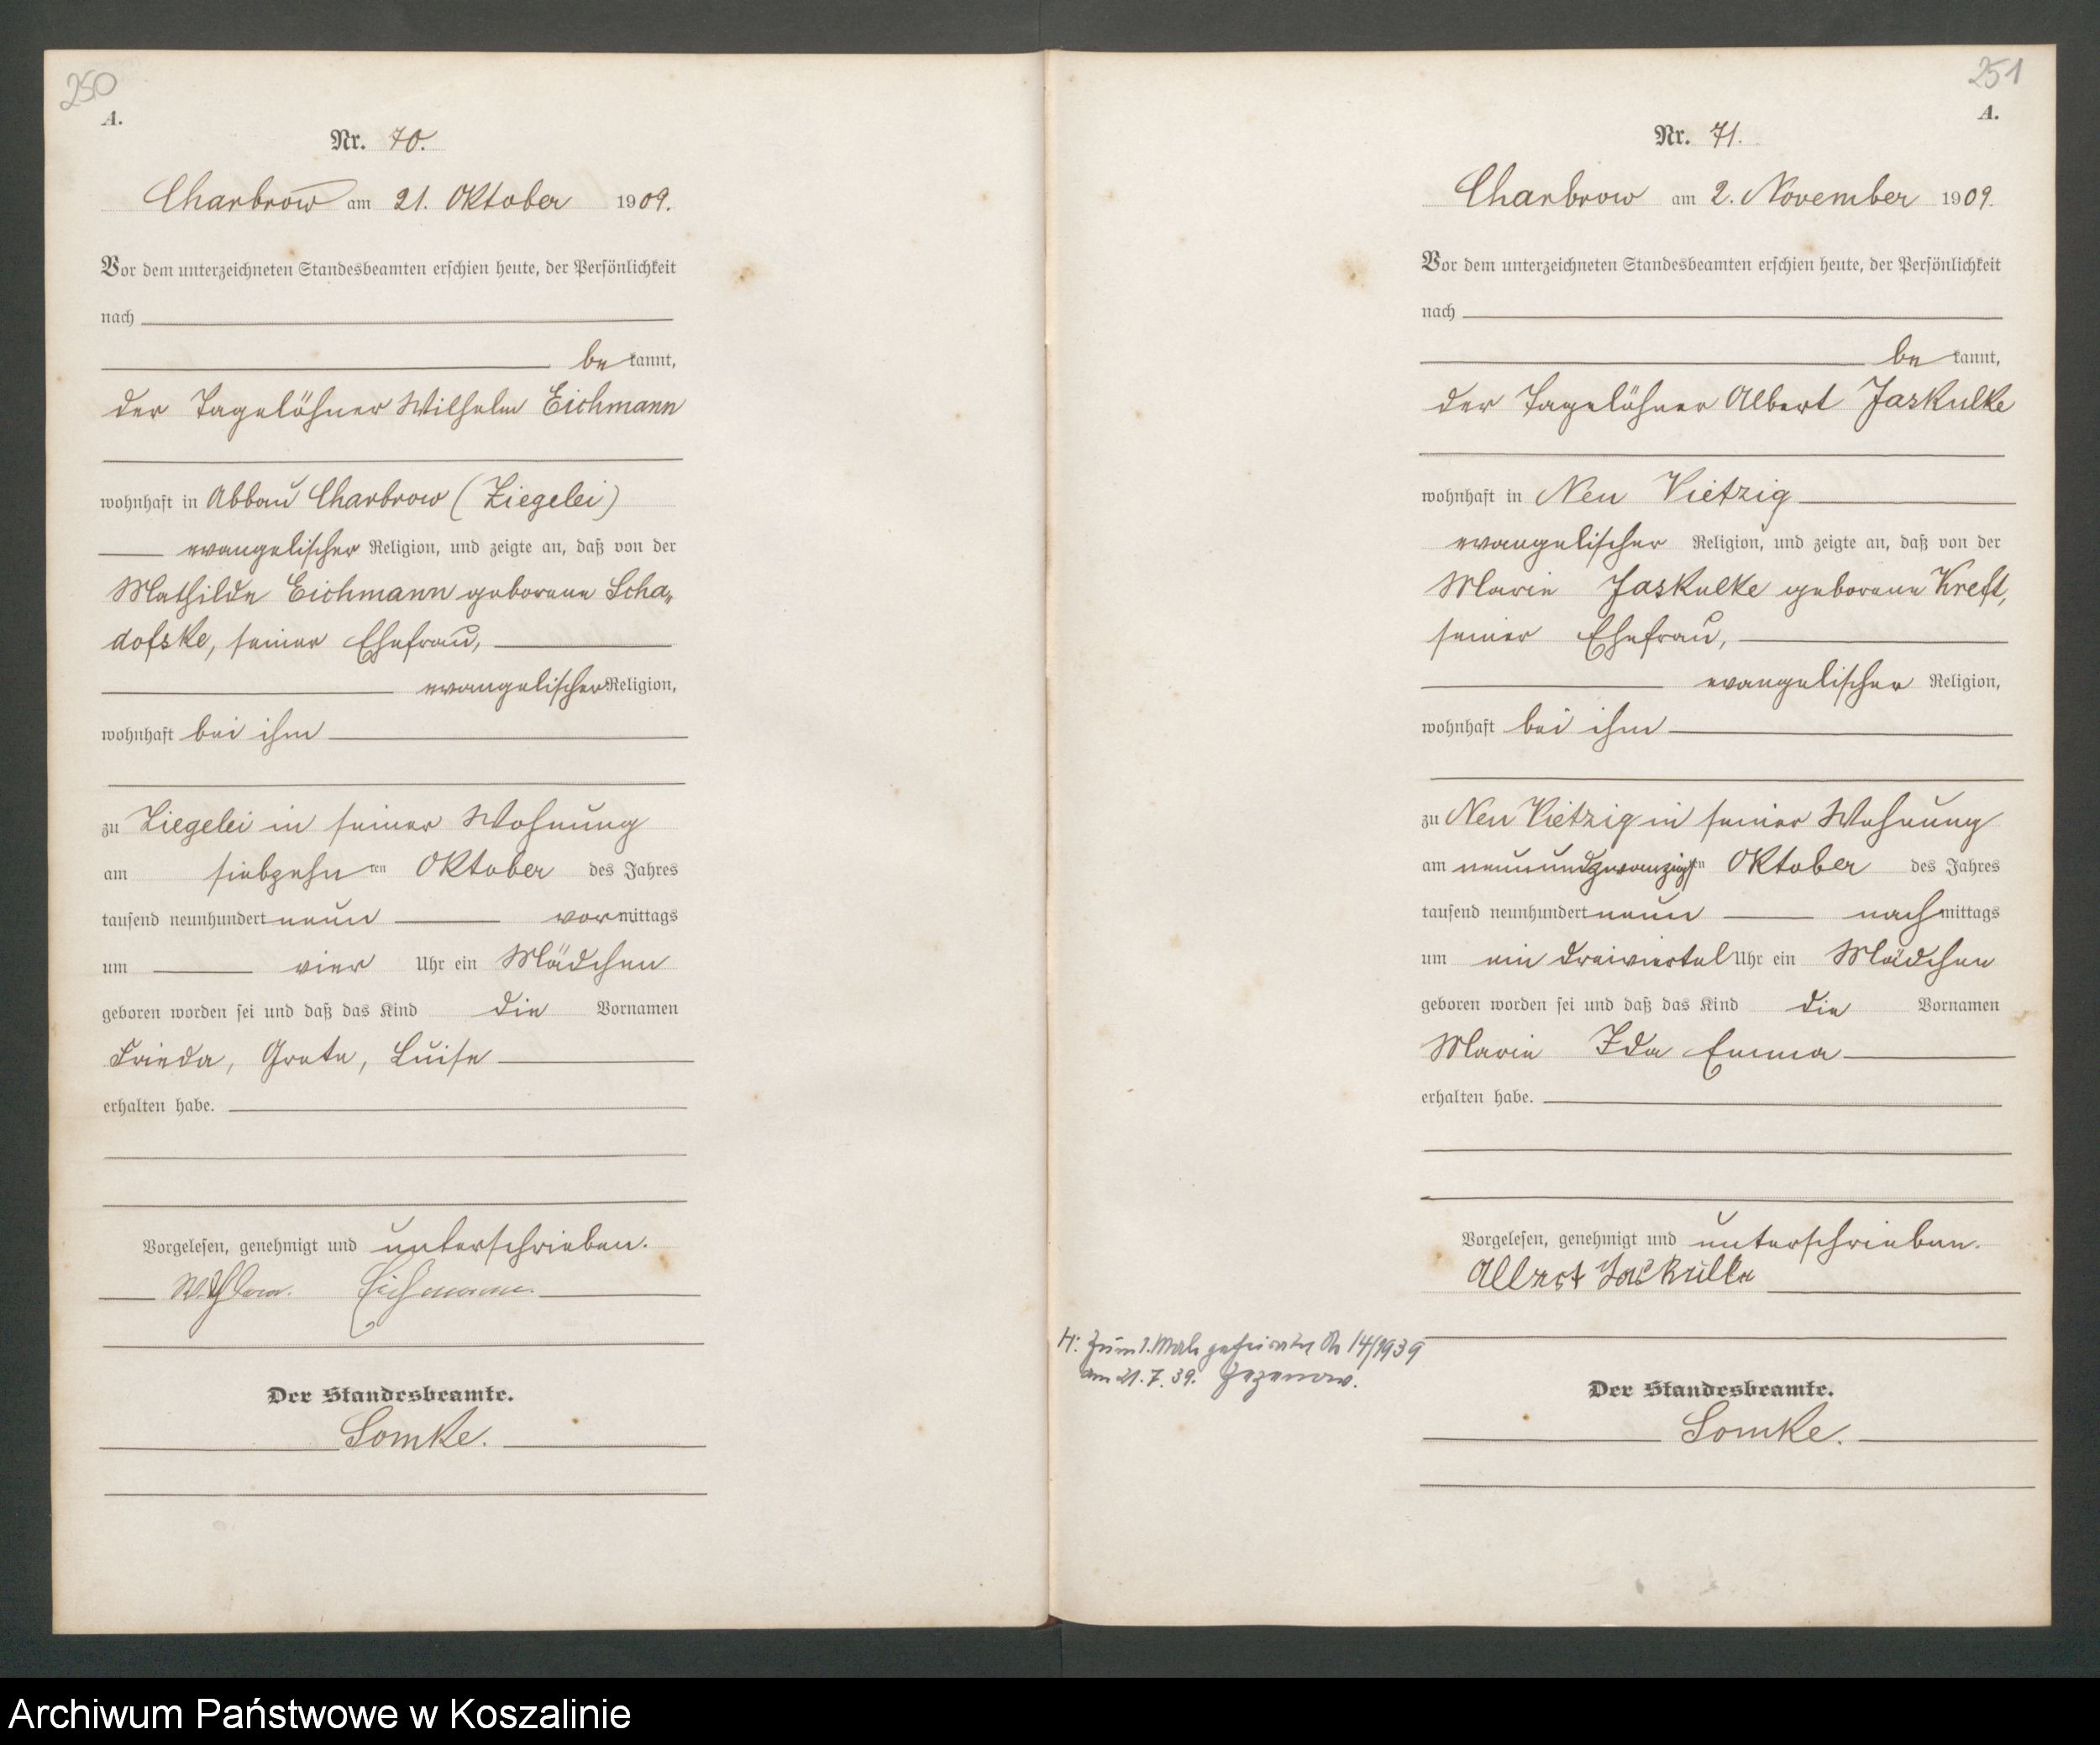 250
A.
Nr. 70.
Charbrow am 21. Oktober 1909.
Vor dem unterzeichneten Standesbeamten erschien heute, der Persönlichkeit
nach
be kannt,
der Tagelöhner Wilhelm Eichmann
wohnhaft in Abbau Charbrow (Ziegelei)
evangelischer Religion, und zeigte an, daß von der
Mathilde Eichmann geborene Scha„
dofske, seiner Ehefrau,
evangelischer Religion,
wohnhaft bei ihm
zu Ziegelei in seiner Wohnung
am siebzehn ten Oktober des Jahres
tausend neunhundert neun vormittags
um vier Uhr ein Mädchen
geboren worden sei und daß das Kind die Vornamen
Frieda, Grete, Luise
erhalten habe.
Vorgelesen, genehmigt und unterschrieben.
Wilhelm Eichmann.
Der Standesbeamte.
Somke.
251
A.
Nr. 71.
Charbrow am 2. November 1909.
Vor dem unterzeichneten Standesbeamten erschien heute, der Persönlichkeit
nach
be kannt,
der Tagelöhner Albert Jaskulke
wohnhaft in Neu Vietzig
evangelischer Religion, und zeigte an, daß von der
Marie Jaskulke geborene Kreft,
seiner Ehefrau,
evangelischer Religion,
wohnhaft bei ihm
zu Neu Vietzig in seiner Wohnung
am neunundzwanzigsten Oktober des Jahres
tausend neunhundert neun nachmittags
um ein dreiviertel Uhr ein Mädchen
geboren worden sei und daß das Kind die Vornamen
Marie Ida Emma
erhalten habe.
Vorgelesen, genehmigt und unterschrieben.
Albert Jaskulke
H: Zum 1. Male geheiratet 14/1939
am 21.7.39. Zezenow.
Der Standesbeamte.
Somke.
Archiwum Państwowe w Koszalinie